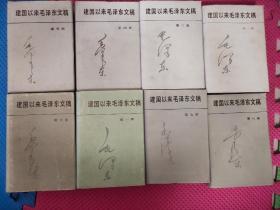 建国以来毛泽东文稿
毛泽东
建国以来毛泽东文稿
毛泽东
建国以来毛泽东文稿
毛泽东
建国以来毛泽东文稿
毛泽东
建国以来毛泽东文稿
毛泽东
建国以来毛泽东文稿
第一册
毛泽东
建国以来毛泽东文稿
毛泽东
建国以来毛泽东文稿
毛泽东